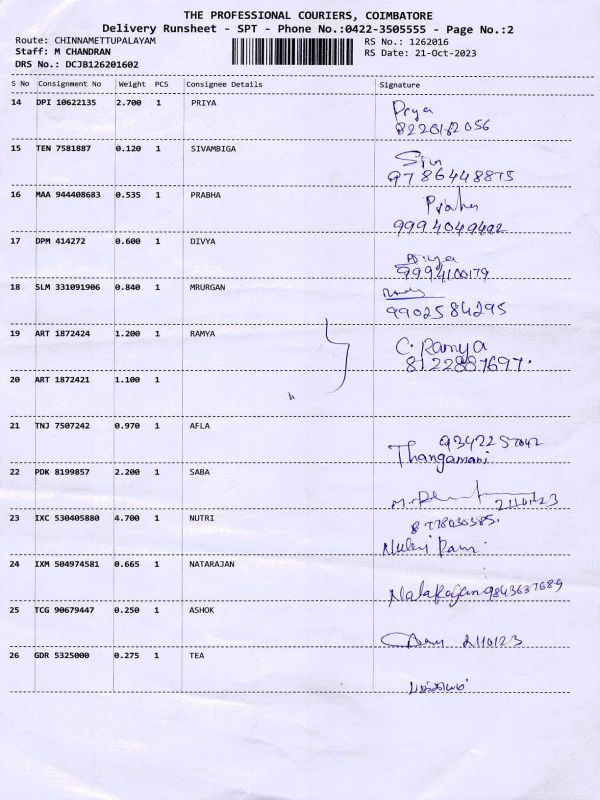 THE PROFESSIONAL COURIERS, COIMBATORE
Delivery Runsheet - SPT - Phone No.:0422-3505555 - Page No.:2
Route: CHINNAMETTUPALAYAM
RS No.: 1262016
Staff: M CHANDRAN
RS Date: 21-Oct-2023
DRS No.: DCJB126201602
S No Consignment No Weight PCS Consignee Details Signature
14 DPI 10622135 2.700 1 PRIYA Priya
15 TEN 7581887 0.120 1 SIVAMBIGA
9786448875
16 MAA 944408683 0.535 1 PRABHA
9994049492
17 DPM 414272 0.600 1 DIVYA
9994100179
18 SLM 331091906 0.840 1 MRURGAN
9902584295
19 ART 1872424 1.200 1 RAMYA C. Ramya
8122887697.
20 ART 1872421 1.100 1
21 TNJ 7507242 0.970 1 AFLA
Thangamani
22 PDK 8199857 2.200 1 SABA
21/10/23
23 IXC 530405880 4.700 1 NUTRI
24 IXM 504974581 0.665 1 NATARAJAN
Natarajan 9843637689
25 TCG 90679447 0.250 1 ASHOK
21/10/23
26 GDR 5325000 0.275 1 TEA